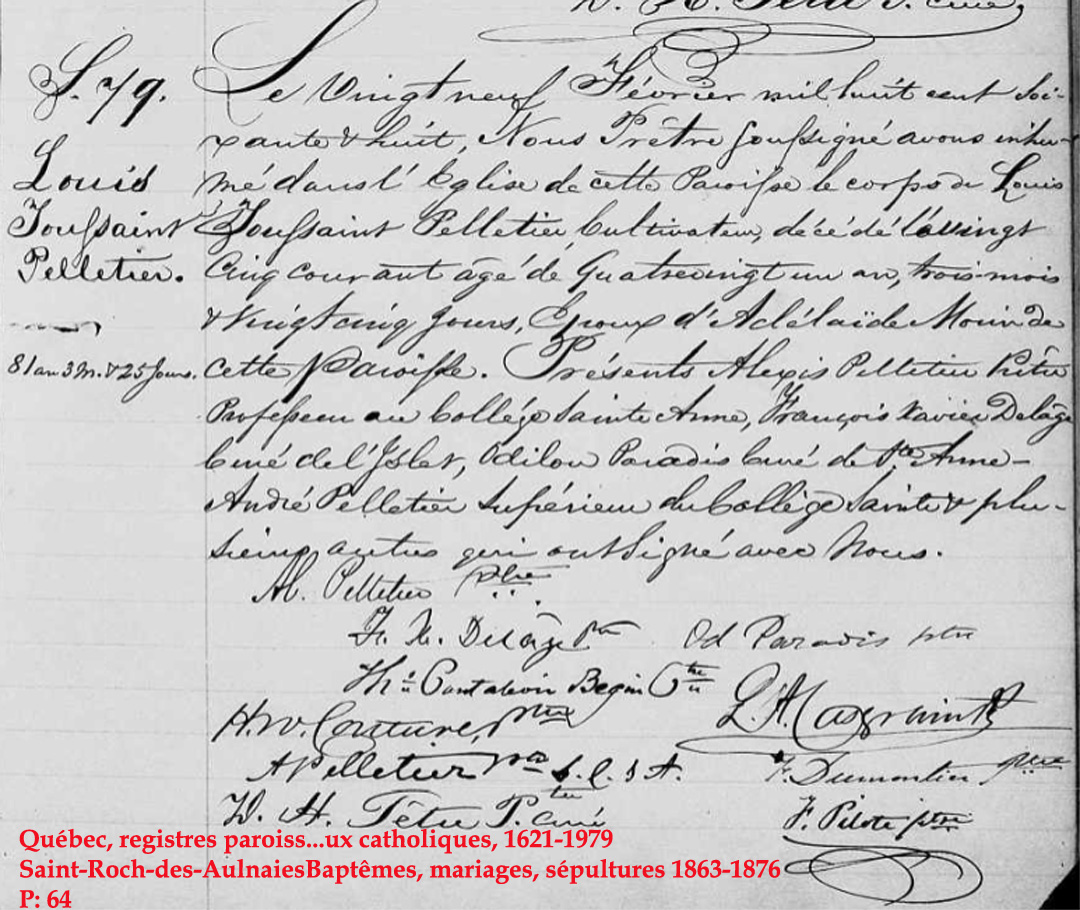 D. H. Têtu P. curé
S. 79.
Louis
Toussaint
Pelletier.
81 an 3 m. & 25 jours.
Le Vingt neuf Février mil huit cent soi-
xante & huit, Nous Prêtre soussigné avons inhu-
mé dans l'Eglise de cette Paroisse le corps de Louis
Toussaint Pelletier, Cultivateur, décédé le vingt
cinq courant âgé de Quatrevingt un an, trois mois
& Vingt cinq jours, Epoux d'Adélaïde Morin de
cette Paroisse. Présents Alexis Pelletier Prêtre
Professeur au Collége Sainte Anne, François Xavier Delâge
Curé de l'Islet, Odilon Paradis Curé de Ste Anne-
André Pelletier Supérieur du Collège Sainte & plu-
sieurs autres qui ont signé avec Nous.
Al. Pelletier Ptre
F. X. Delâge Ptre Od Paradis ptre
Chs Pantaleon Begin Ptre
H. W. Couture, ptre L. A. Casgrain
A Pelletier Ptre S. C. S A. F. Dumontier ptre
D. H. Têtu Ptre curé F. Pilote ptre
Québec, registres paroiss...ux catholiques, 1621-1979
Saint-Roch-des-AulnaiesBaptêmes, mariages, sépultures 1863-1876
P: 64